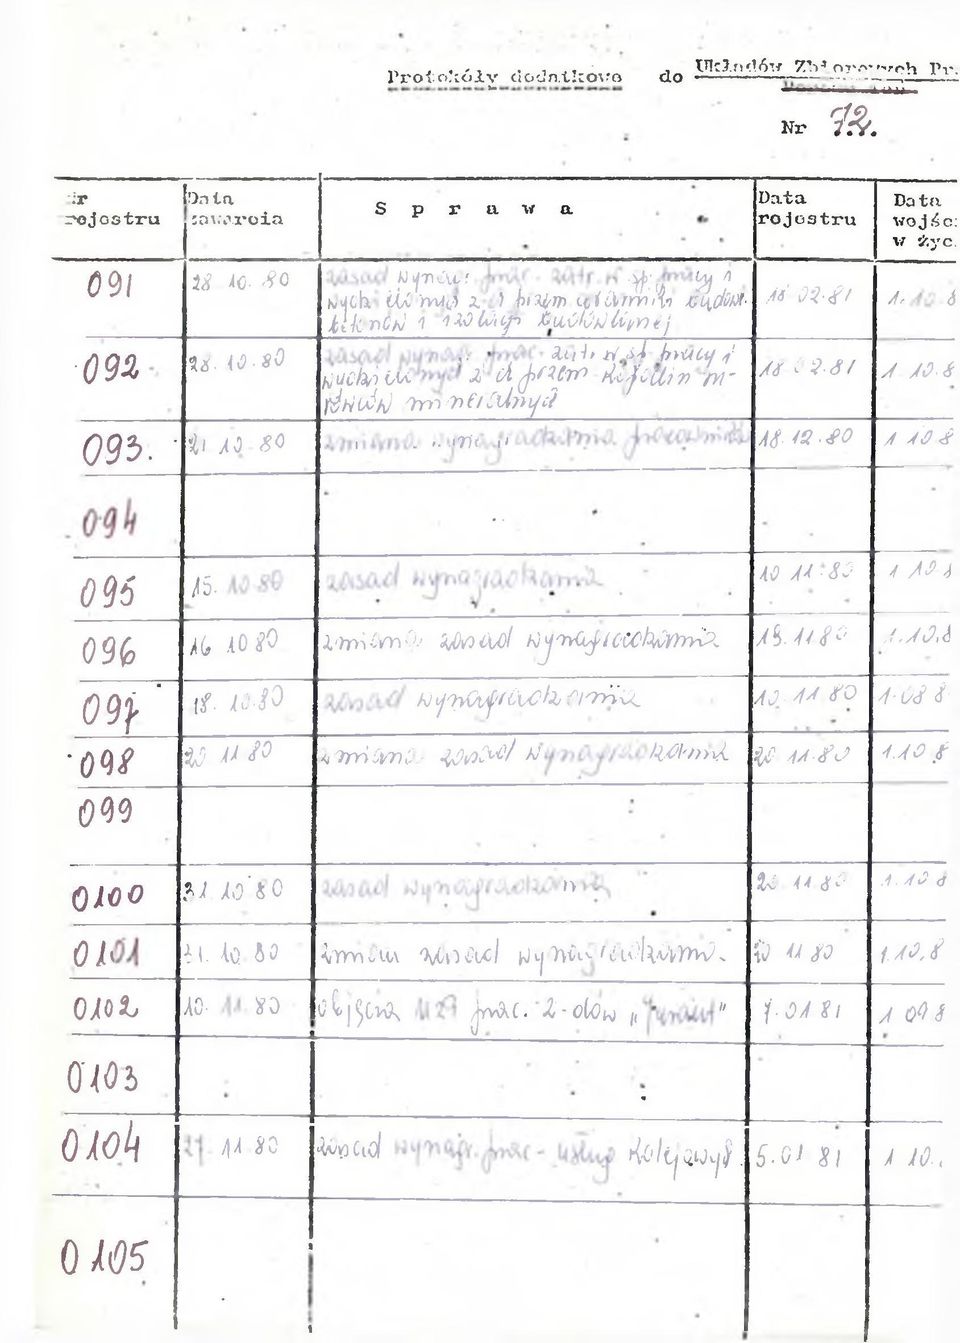 Protokóły dodatkowe do Układów Zbiorowych Pr.
Nr 72.
Nr rejestru Data zawarcia S p r a w a Data rejestru Data wejśc. w życ.
091 28 10. 80 zasad wynagr. prac. zatr. w sp. pracy i 18 02.81 1. 10.8
wydzielonych z d przem budowl.
betonów i izolacji budowlanej
092 28. 10. 80 zasad wynagr. prac. zatr. w sp. pracy i 18.02.81 1. 10.8
wydzielonych z d przem
mineralnych
093. 21 10. 80 zmiana wynagradzania pracownika 18.12.80 1 10 8
094
095 15. 10 80 zasad wynagradzania 10 11.80 1 10 8
096 16 10 80 zmiana zasad wynagradzania 19.11 80 1.10.8
097 18. 10.80 zasad wynagradzania 10. 11.80 1.08 8
098 20 11 80 zmiana zasad wynagradzania 20 11.80 1.10 8
099
0100 31 10 80 zasad wynagradzania 20 11.80 1.10 8
0101 31. 10. 80 zmian zasad wynagradzania. 20 11 80 1.10.8
0102 10. 11.80 objęcia prac. z-dów 7.01 81 1 09 8
0103
0104 27. 11 80 zasad wynagr. prac- usług kolejowych 5.01 81 1 10.
0105